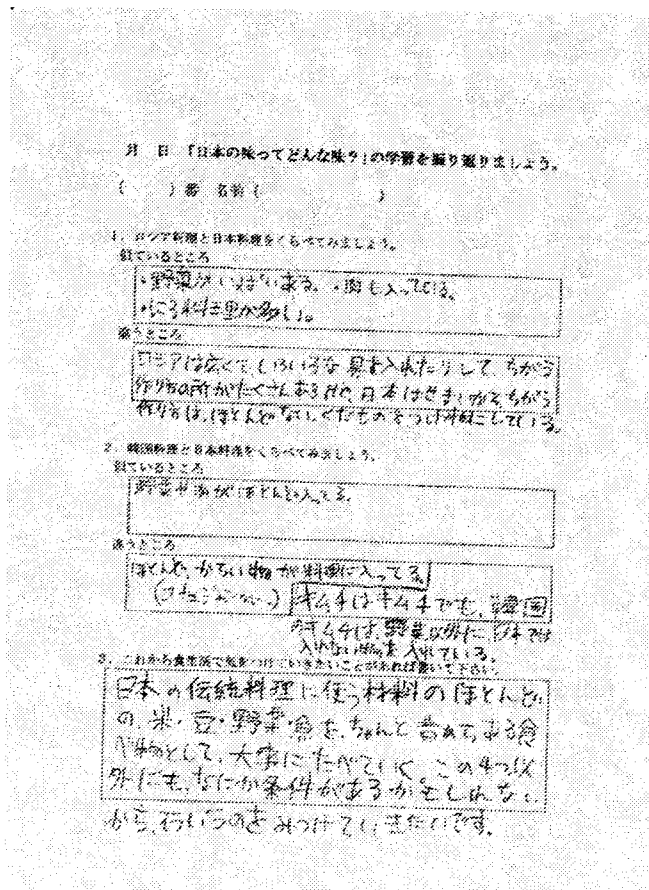 月 日 「日本の味ってどんな味?」の学習を振り返りましょう。
( )番 名前( )
1. ロシア料理と日本料理をくらべてみましょう。
似ているところ
・野菜がいっぱい ある。・肉も入っている。
・にる料理が多い。
違うところ
ロシアは広くていろいろな具を入れたりして、ちがう
作り方の所がたくさんあるけど、日本はせまいからちがう
作り方は、ほとんどないし、くだものを つけ物にしている。
2. 韓国料理と日本料理をくらべてみましょう。
似ているところ
野菜や がほとんど入ってる。
違うところ
ほとんど、からい物が料理に入ってる。
(コチュジャン ) キムチはキムチでも、韓国
のキムチは、野菜以外に日本では
入れない物を入れている。
3. これから食生活で気をつけていきたいことがあれば書いて下さい。
日本の伝統料理に使う材料のほとんど
の、米・豆・野菜・魚を、ちゃんと ある食
べ物として、大事にたべていく。この4つ以
外にも、なにか条件があるかもしれない
から、そういうのをみつけていきたいです。